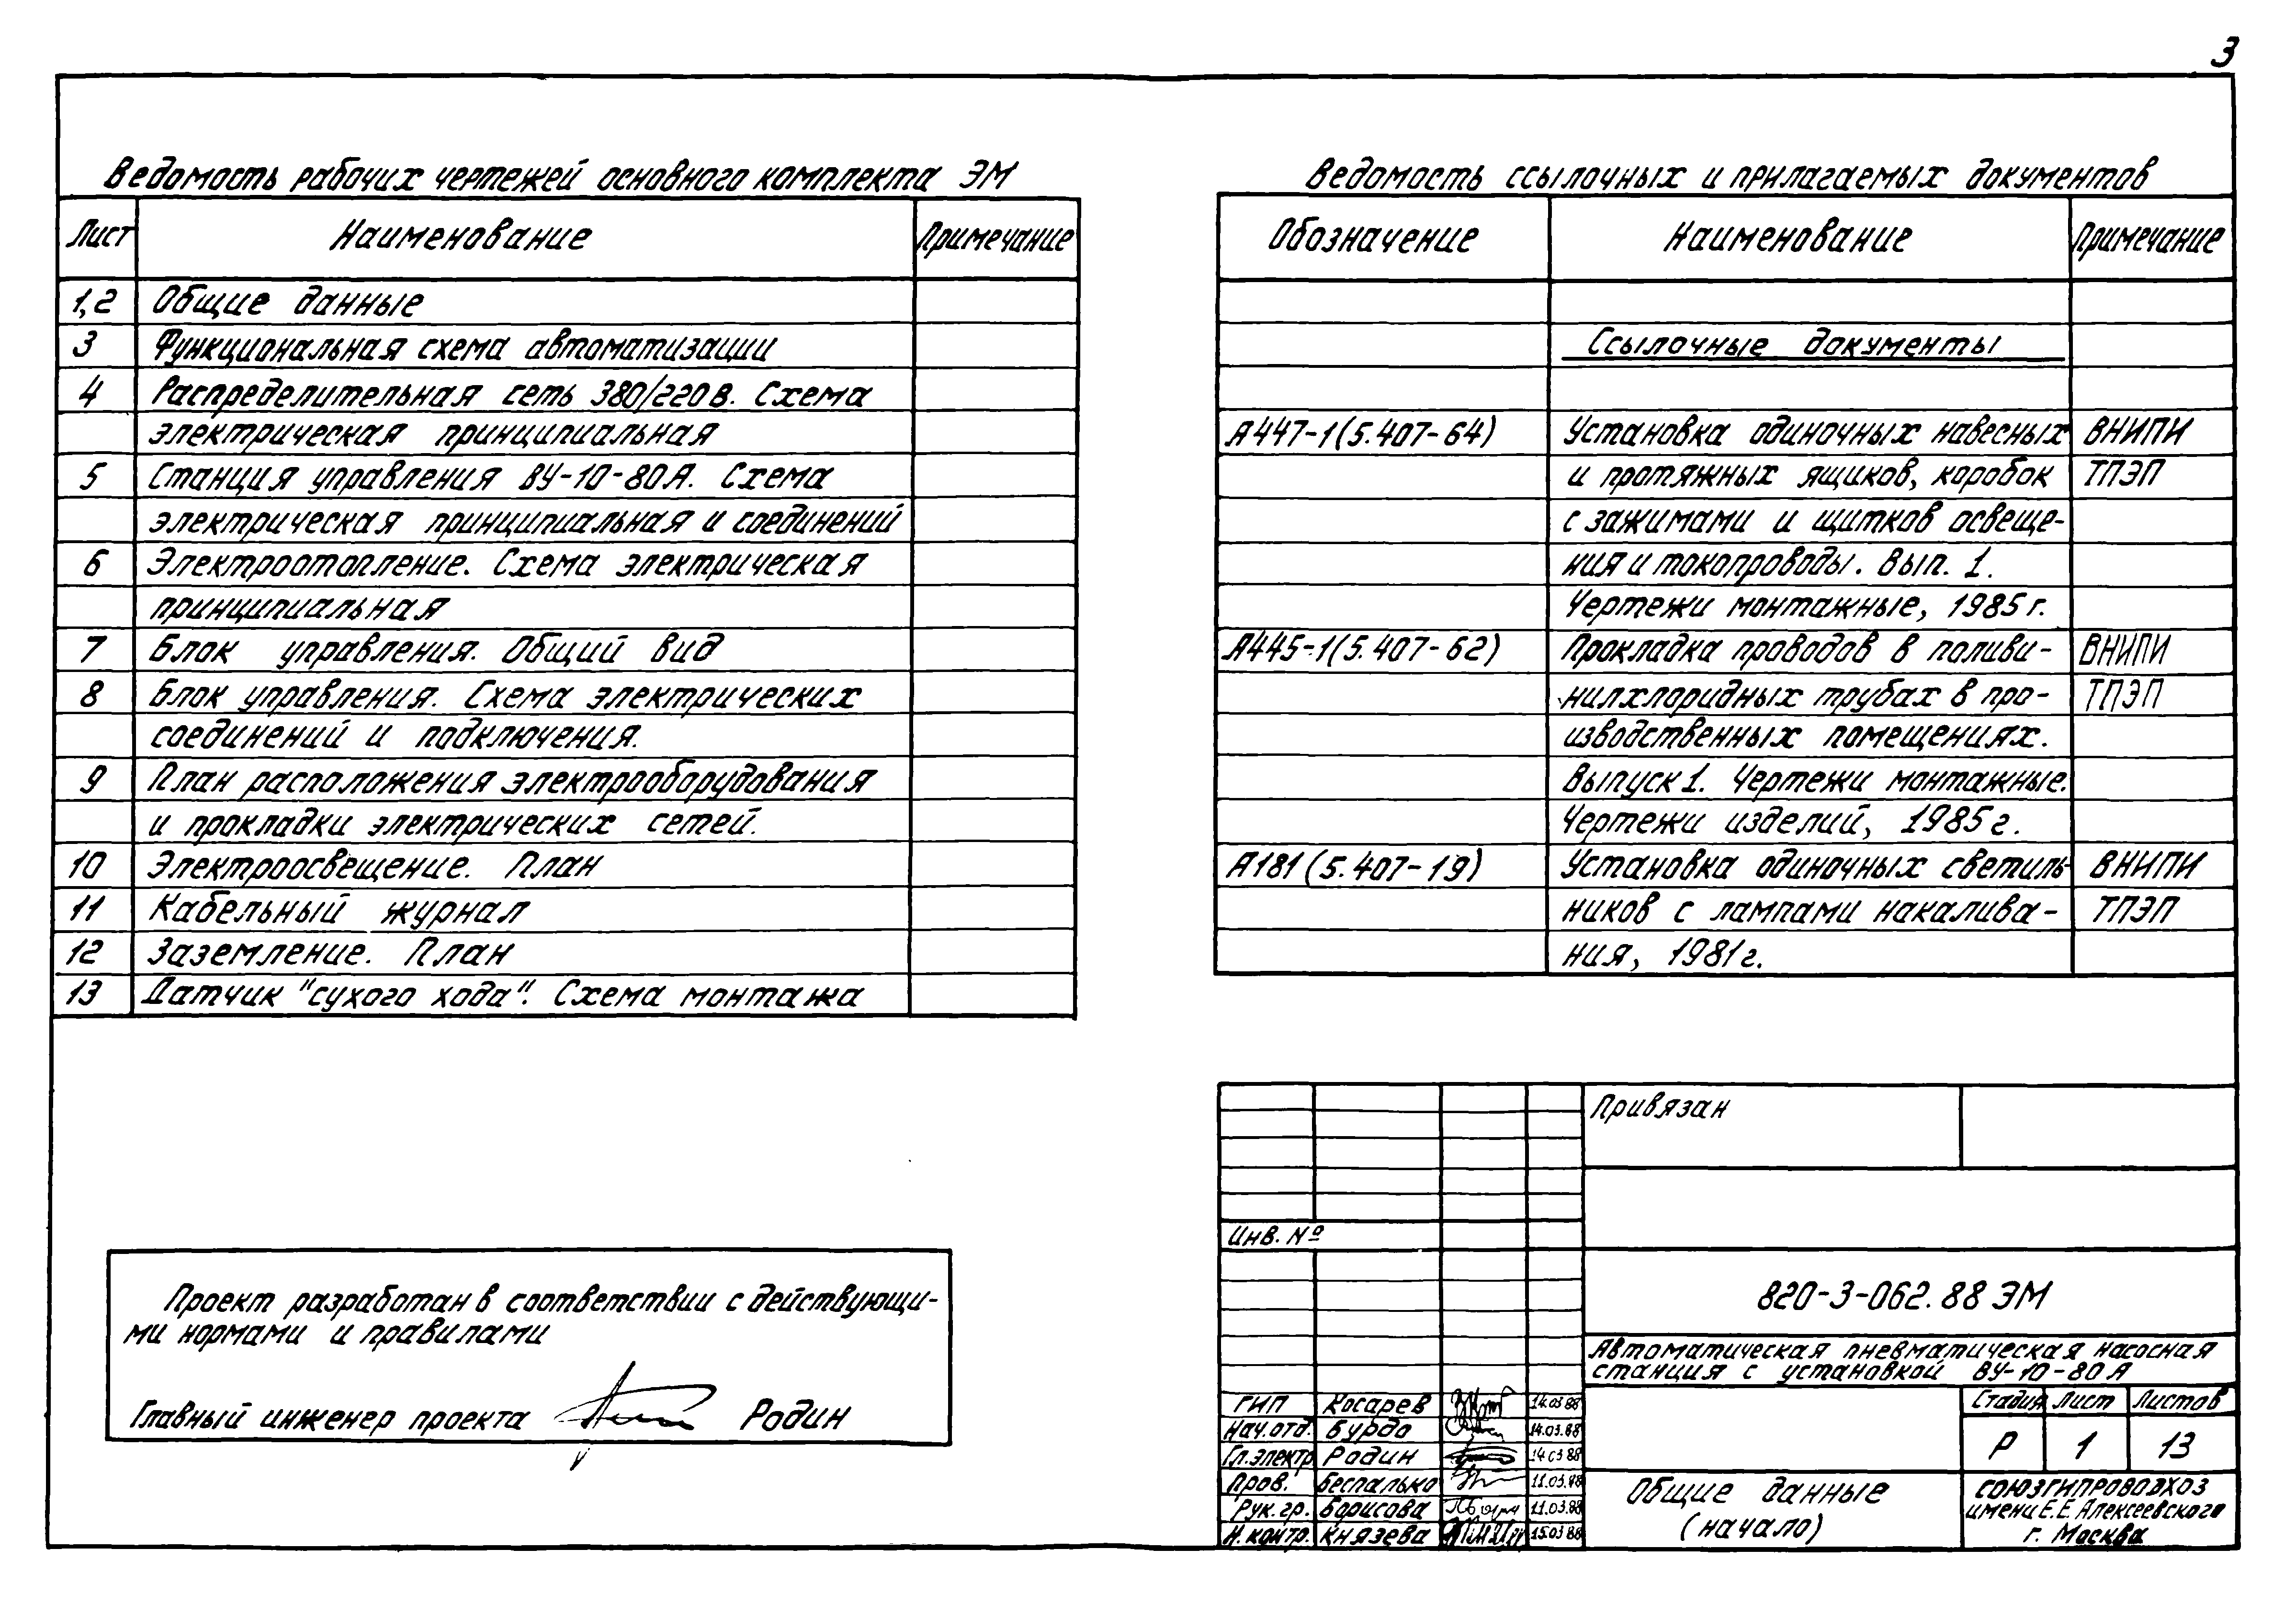 3
Ведомость рабочих чертежей основного комплекта ЭМ
Лист Наименование Примечание
1,2 Общие данные
3 Функциональная схема автоматизации
4 Распределительная сеть 380/220 В. Схема
электрическая принципиальная
5 Станция управления ВУ-10-80А. Схема
электрическая принципиальная и соединений
6 Электроотопление. Схема электрическая
принципиальная
7 Блок управления. Общий вид
8 Блок управления. Схема электрических
соединений и подключения.
9 План расположения электрооборудования
и прокладки электрических сетей.
10 Электроосвещение. План
11 Кабельный журнал
12 Заземление. План
13 Датчик "сухого хода". Схема монтажа
Ведомость ссылочных и прилагаемых документов
Обозначение Наименование Примечание
Ссылочные документы
А447-1(5.407-64) Установка одиночных навесных ВНИПИ
и протяжных ящиков, коробок ТПЭП
с зажимами и щитков освеще-
ния и токопроводы. Вып. 1.
Чертежи монтажные, 1985 г.
А445-1(5.407-62) Прокладка проводов в поливи- ВНИПИ
нилхлоридных трубах в про- ТПЭП
изводственных помещениях.
Выпуск 1. Чертежи монтажные.
Чертежи изделий, 1985 г.
А181 (5.407-19) Установка одиночных светиль- ВНИПИ
ников с лампами накалива- ТПЭП
ния, 1981 г.
Проект разработан в соответствии с действующи-
ми нормами и правилами
Главный инженер проекта Родин
Привязан
Инв. №
820-3-062.88 ЭМ
Автоматическая пневматическая насосная
станция с установкой ВУ-10-80А
ГИП Косарев 14.03.88
Нач. отд. Бурдо 14.03.88
Гл. электр. Родин 14.03.88
Пров. Беспалько 11.03.88
Рук. гр. Борисова 11.03.88
Н. контр. Князева 15.03.88
Стадия Лист Листов
Р 1 13
Общие данные
(начало)
СОЮЗГИПРОВОДХОЗ
имени Е.Е. Алексеевского
г. Москва